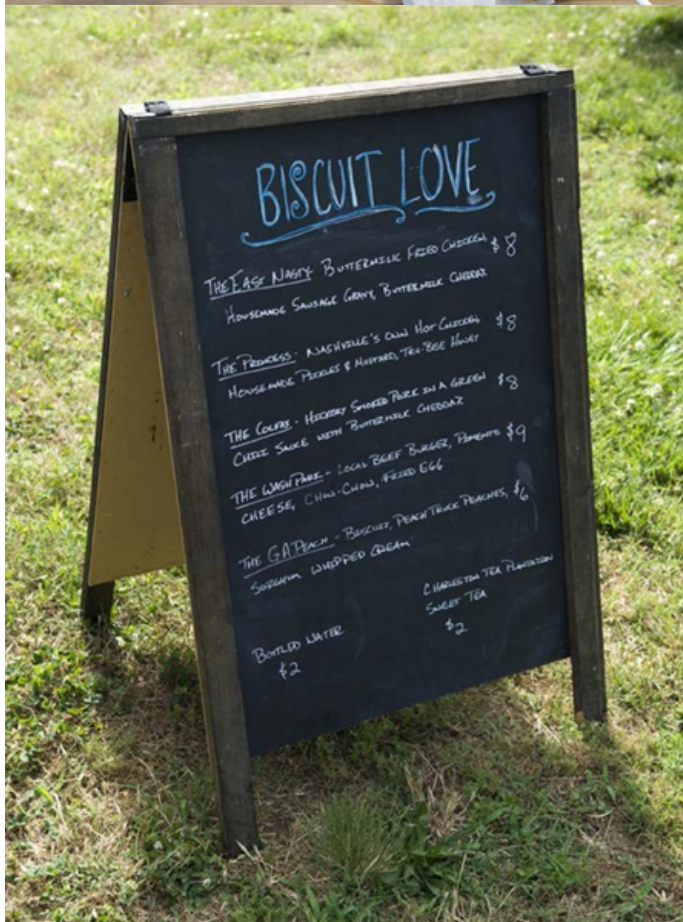 BISCUIT LOVE
THE EAST NASTY - BUTTERMILK FRIED CHICKEN, $8
HOUSEMADE SAUSAGE GRAVY, BUTTERMILK CHEDDAR
THE PRINCESS - NASHVILLE'S OWN HOT CHICKEN $8
HOUSEMADE PICKLES & MUSTARD, TRU-BEE HONEY
THE COLFAX - HICKORY SMOKED PORK IN A GREEN $8
CHILI SAUCE WITH BUTTERMILK CHEDDAR
THE WASH PARK - LOCAL BEEF BURGER, PIMENTO $9
CHEESE, CHOW-CHOW, FRIED EGG
THE GA PEACH - BISCUIT, PEACH TRUCK PEACHES, $6
SORGHUM WHIPPED CREAM
BOTTLED WATER
$2
CHARLESTON TEA PLANTATION
SWEET TEA
$2